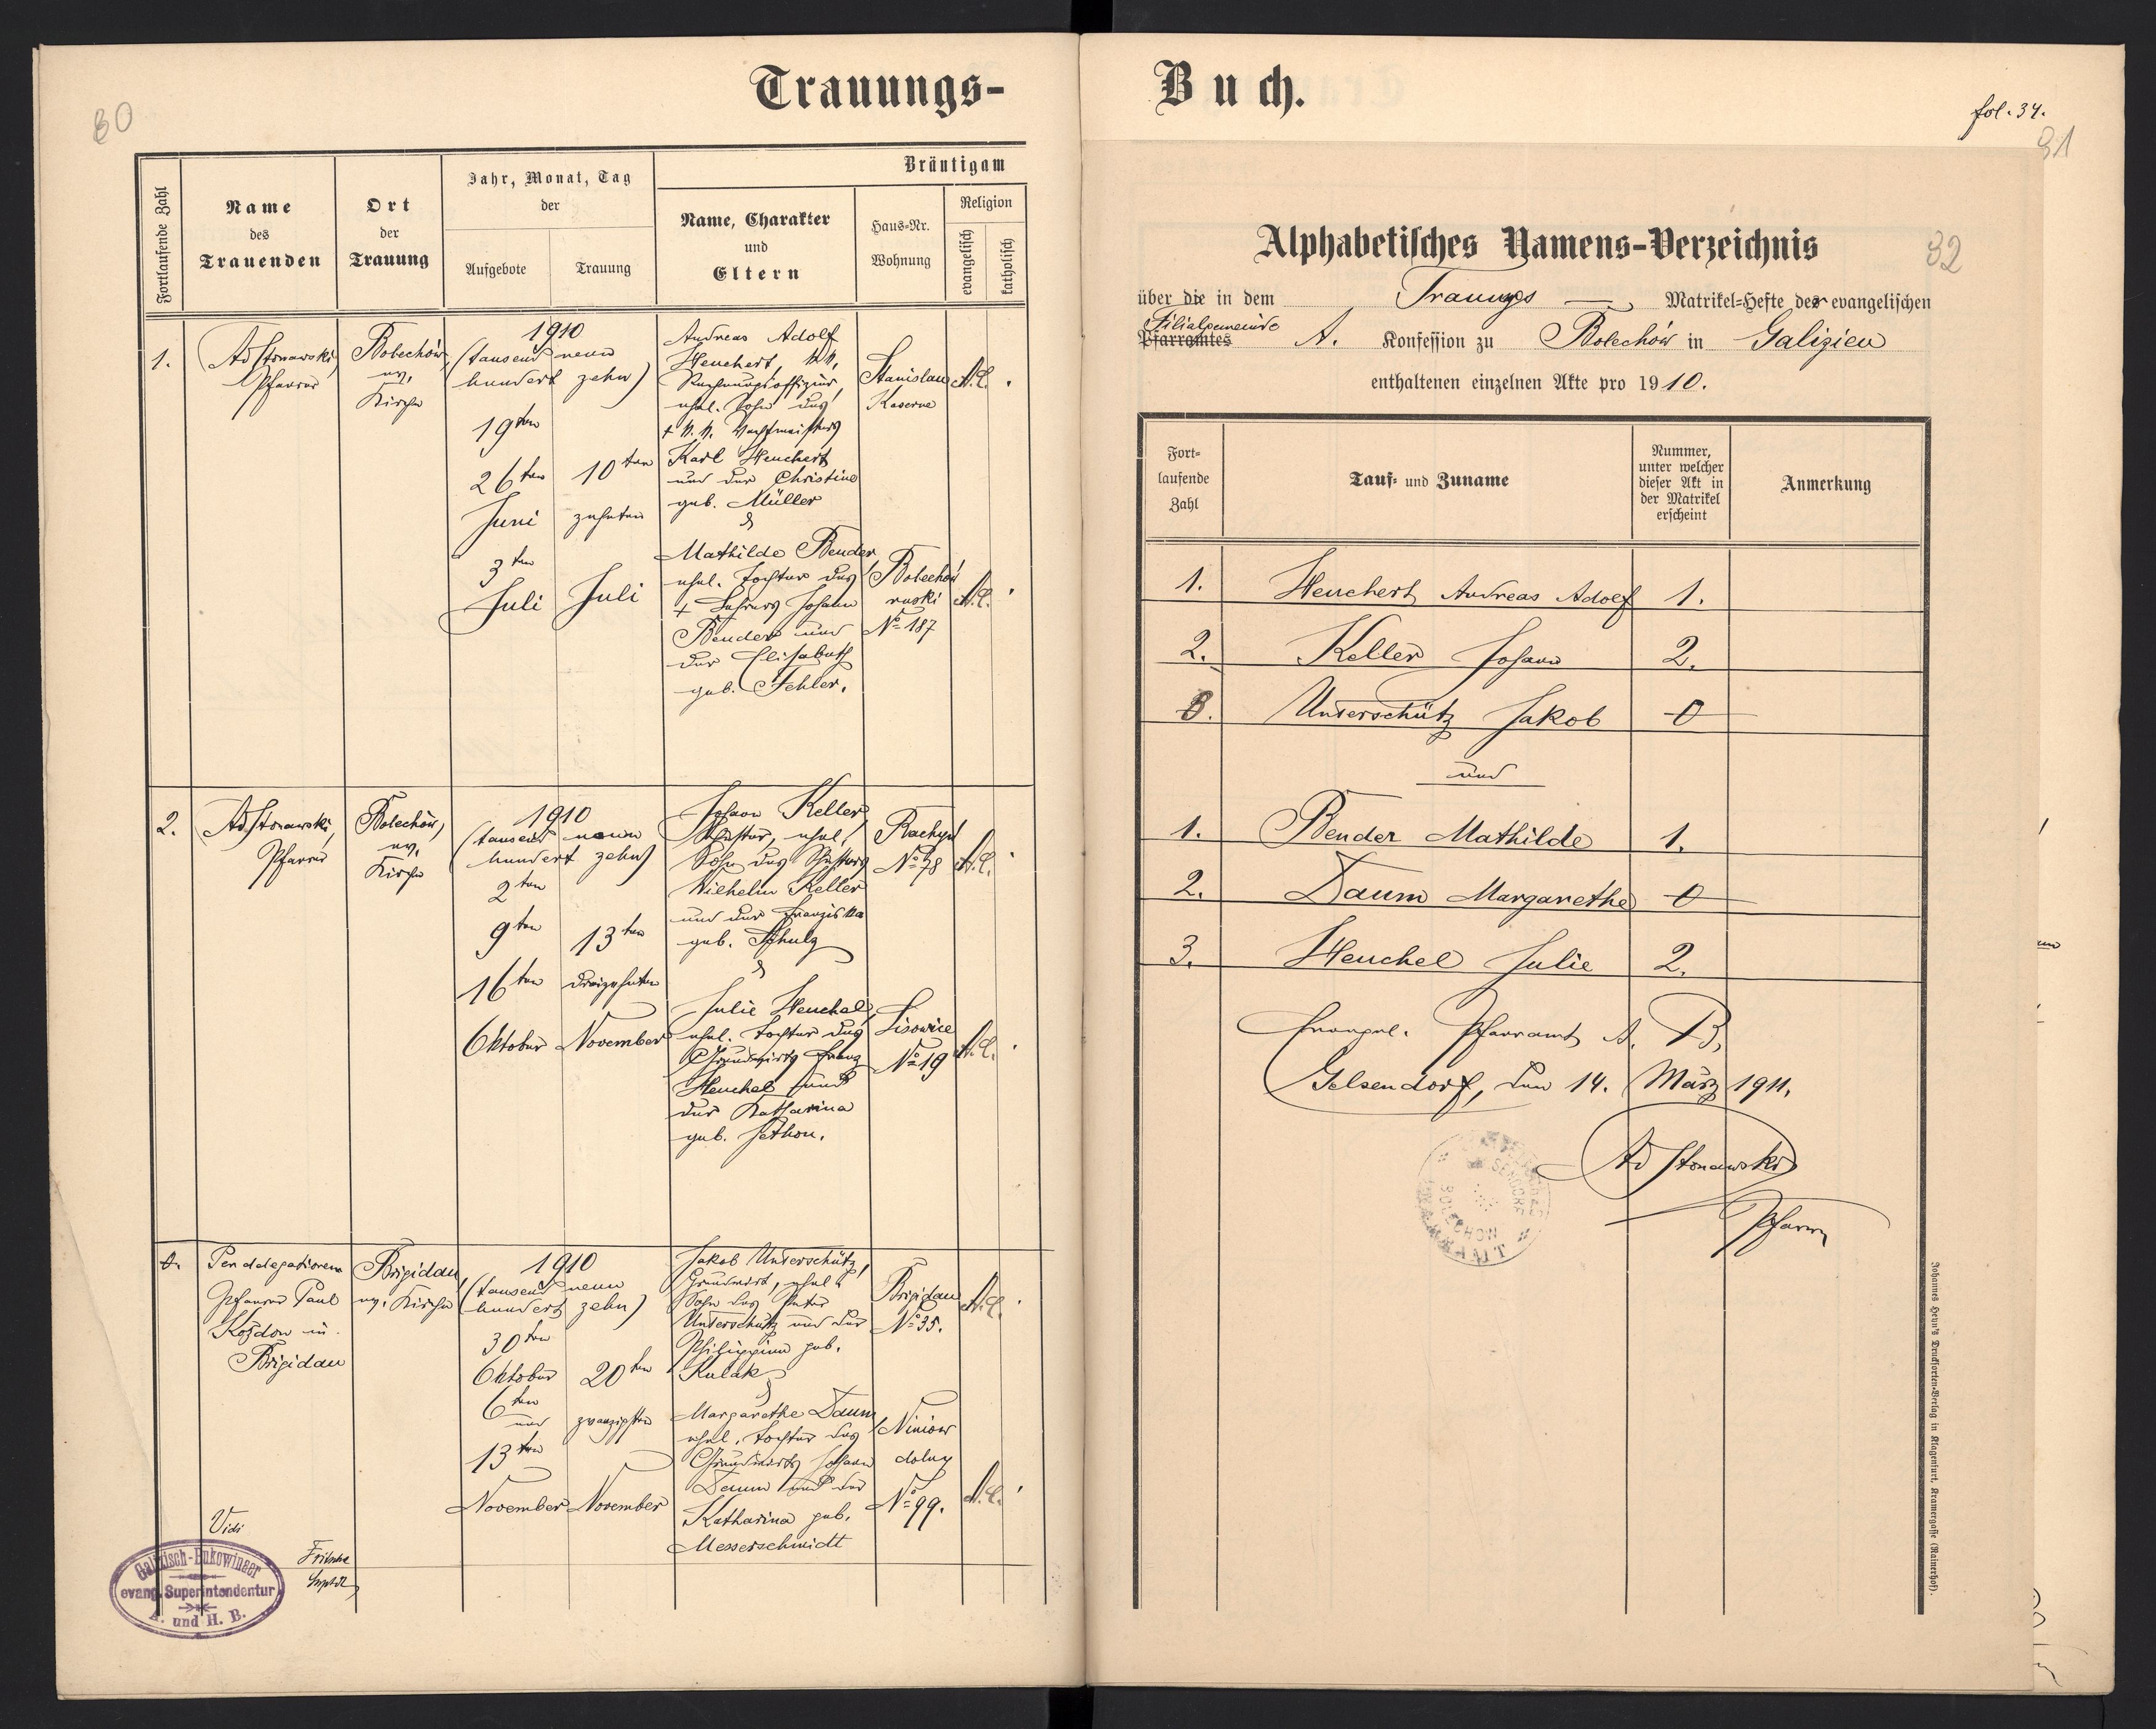 Trauungs-
Buch.
80
fol. 34.
31
32
Fortlaufende Zahl
Name
des
Trauenden
Ort
der
Trauung
Jahr, Monat, Tag
der
Aufgebote
Trauung
Bräutigam
Name, Charakter
und
Eltern
Haus-Nr.
Wohnung
Religion
evangelisch
katholisch
1.
Ad Stonawski,
Pfarrer
Bolechów,
ev.
Kirche
1910
(tausend neun
hundert zehn)
19ten
26ten
Juni
3ten
Juli
10ten
zehnten
Juli
Andreas Adolf
Heuchert, k.k.
Rechnungsoffizier,
ehel. Sohn des
† k. k. Wachtmeisters
Karl Heuchert
und der Christine
geb. Müller
&
Stanislau
Kaserne
A.C.
Mathilde Bender
ehel. Tochter des
† Lehrers Johann
Bender und
der Elisabeth
geb. Fehler.
Bolechów
ruski
Nº 187
A.C.
2.
Ad Stonawski,
Pfarrer
Bolechów,
ev.
Kirche
1910
(tausend neun
hundert zehn)
2ten
9ten
16ten
Oktober
13ten
dreizehnten
November
Johann Keller,
Schuster, ehel.
Sohn des Schusters
Wilhelm Keller
und der Franziska
geb. Schulz
&
Rachyń
Nº 78
A.C.
Julie Heuchel,
ehel. Tochter des
Grundwirts Franz
Heuchel und
der Katharina
geb. Jethon.
Lisowice
Nº 19
A.C.
0.
Per delegationem
Pfarrer Paul
Kożdoń in
Brigidau
Brigidau,
ev. Kirche
1910
(tausend neun
hundert zehn)
30ten
Oktober
6ten
und
13ten
November
20ten
zwanzigsten
November
Jakob Unterschütz,
Grundwirt, ehel.
Sohn des Peter
Unterschütz und der
Philippine geb.
Kulak
&
Brigidau
Nº 35.
A.C.
Margarethe Daum,
ehel. Tochter des
Grundwirts Johann
Daum und der
Katharina geb.
Messerschmidt
Niniow
dolny
Nº 99.
A.C.
Vidi
Fritsche
Suptdt
Galizisch-Bukowinaer
evang. Superintendentur
A. und H. B.
Alphabetisches Namens-Verzeichnis
über die in dem Trauungs — Matrikel-Hefte der evangelischen
Filialgemeinde
Pfarramtes A. Konfession zu Bolechów in Galizien
enthaltenen einzelnen Akte pro 1910.
Fort-
laufende
Zahl
Tauf- und Zuname
Nummer,
unter welcher
dieser Akt in
der Matrikel
erscheint
Anmerkung
1. Heuchert Andreas Adolf 1.
2. Keller Johann 2.
3. Unterschütz Jakob 0
und
1. Bender Mathilde 1.
2. Daum Margarethe 0
3. Heuchel Julie 2.
Evangel. Pfarramt A. B.
Gelsendorf, den 14. März 1911.
Ad Stonawski
Pfarrer
BOLECHOW
Johannes Heyn's Drucksorten-Verlag in Klagenfurt, Kramergasse (Rainerhof).